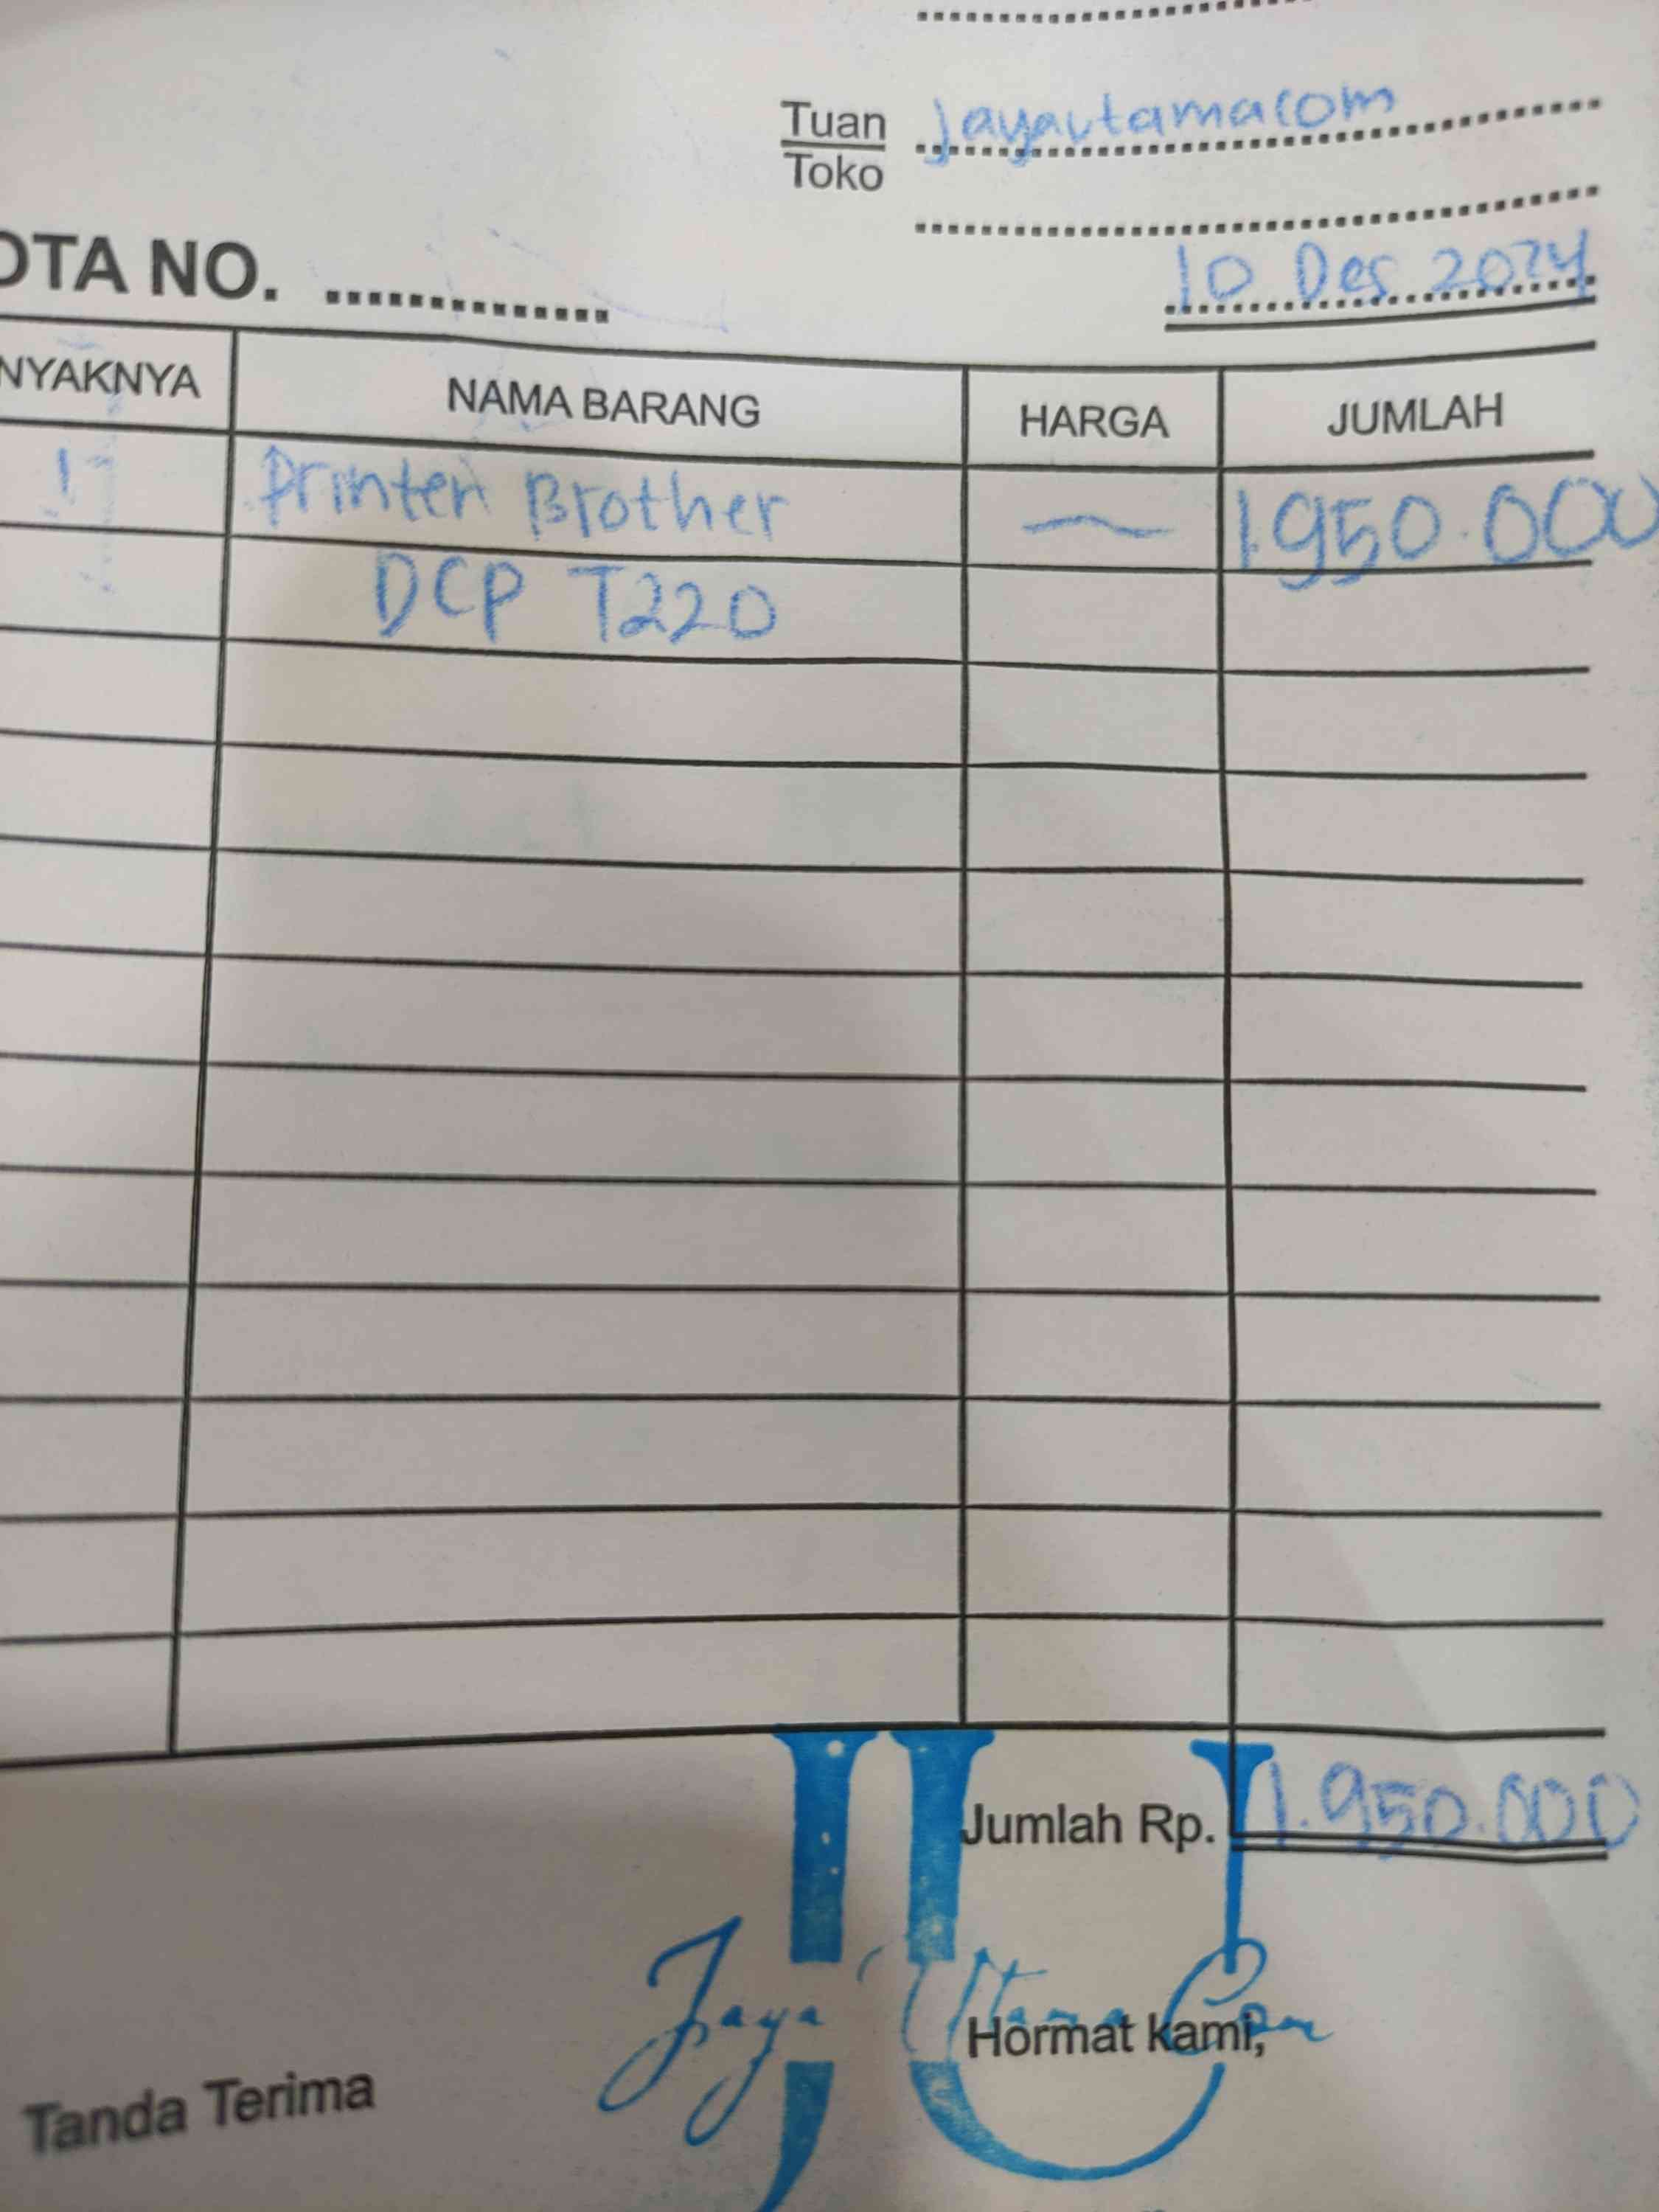 Tuan jayautamacom
Toko
OTA NO. ..............
10 Des 2024
NYAKNYA NAMA BARANG HARGA JUMLAH
1 Printer Brother — 1.950.000
DCP T220
Jumlah Rp. 1.950.000
JU
Jaya Utama Com
Hormat kami,
Tanda Terima